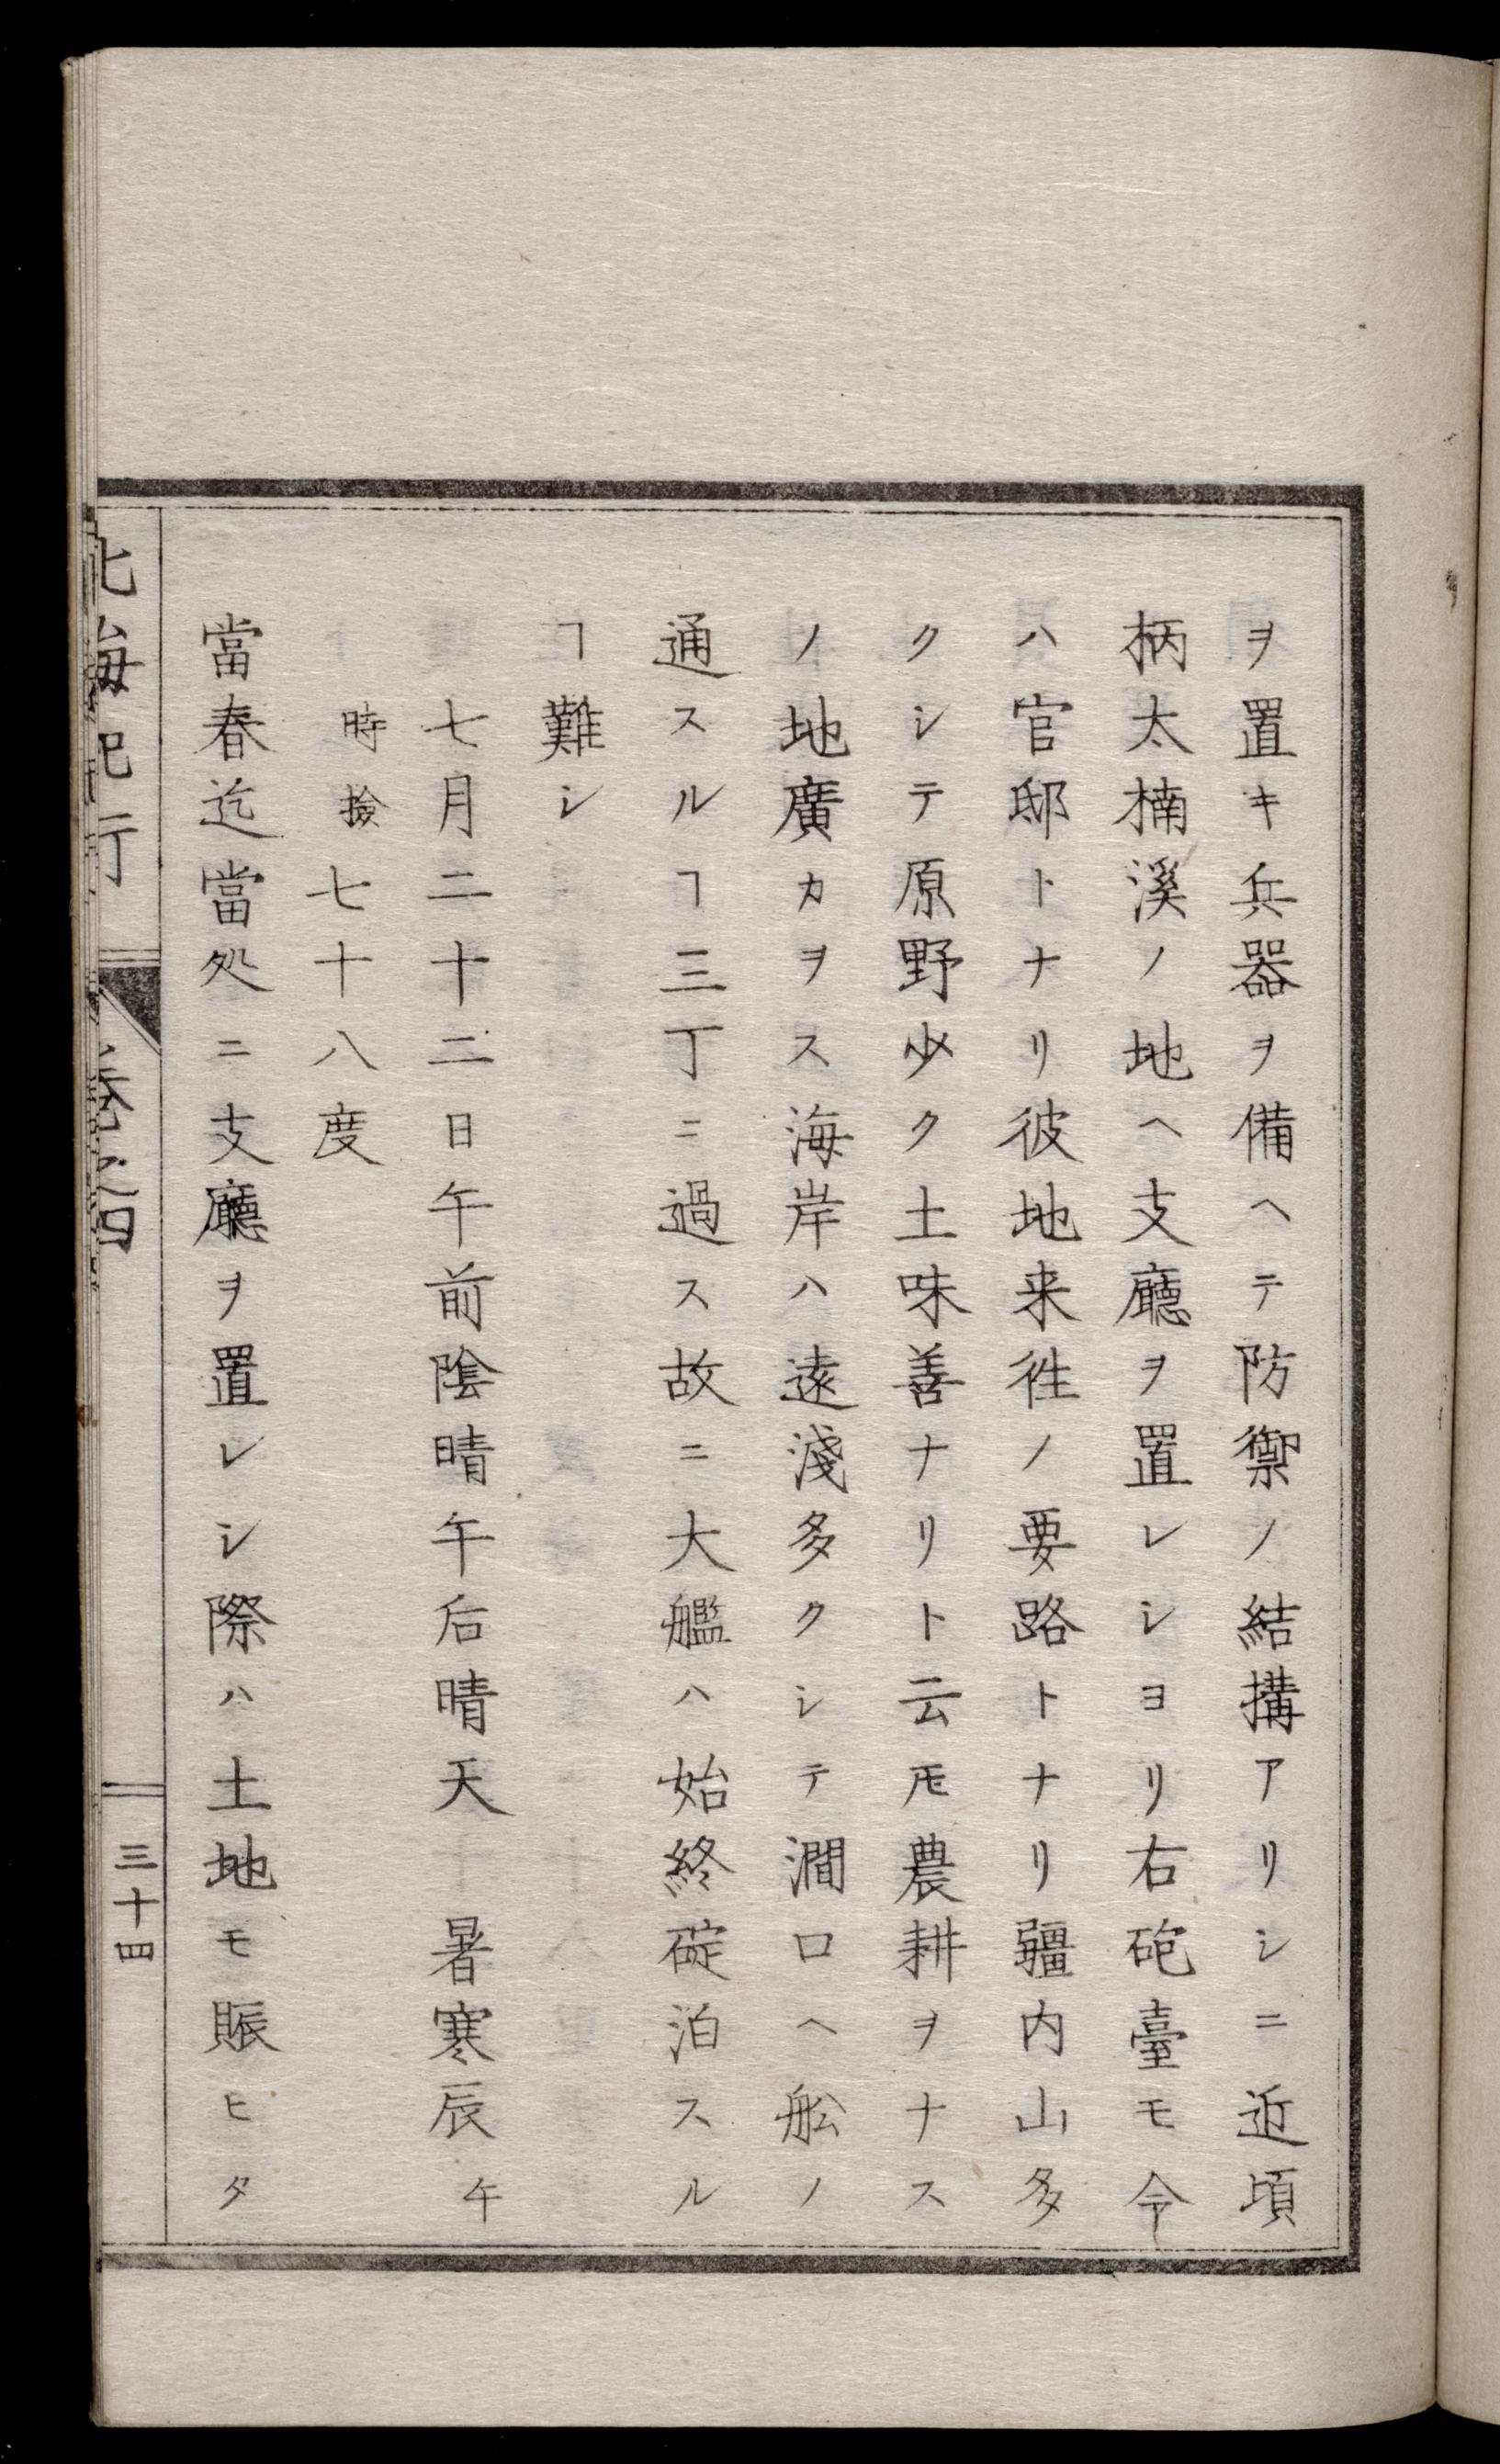 ヲ置キ兵器ヲ備ヘテ防禦ノ結搆アリシニ近頃
柄太楠溪ノ地ヘ支廳ヲ置レショリ右砲臺モ今
ハ官邸トナリ彼地来徃ノ要路トナリ疆内山多
クシテ原野少ク土味善ナリト云𪜈農耕ヲナス
ノ地廣カヲス海岸ハ遠淺多クシテ澗口ヘ舩ノ
通スルヿ三丁ニ過ス故ニ大艦ハ始終碇泊スル
ヿ難シ
七月二十二日午前陰晴午后晴天 暑寒辰午
時撿七十八度
當春迄當処ニ支廳ヲ置レシ際ハ土地モ賑ヒタ
北海紀行 巻之四 三十四